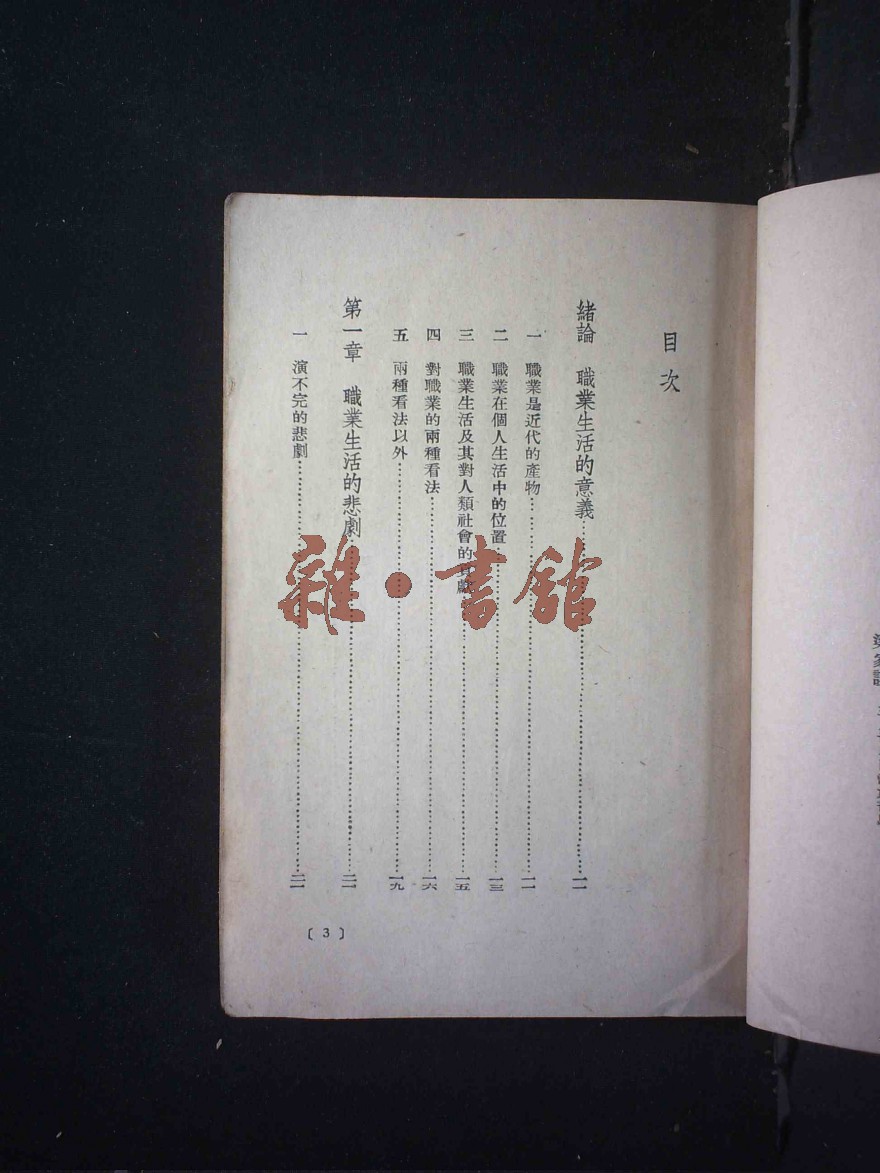 目次
緒論 職業生活的意義⋯⋯一一
一 職業是近代的產物⋯⋯一一
二 職業在個人生活中的位置⋯⋯一三
三 職業生活及其對人類社會的貢獻⋯⋯一五
四 對職業的兩種看法⋯⋯一六
五 兩種看法以外⋯⋯一九
第一章 職業生活的悲劇⋯⋯二一
一 演不完的悲劇⋯⋯二一
〔3〕
雜·書館